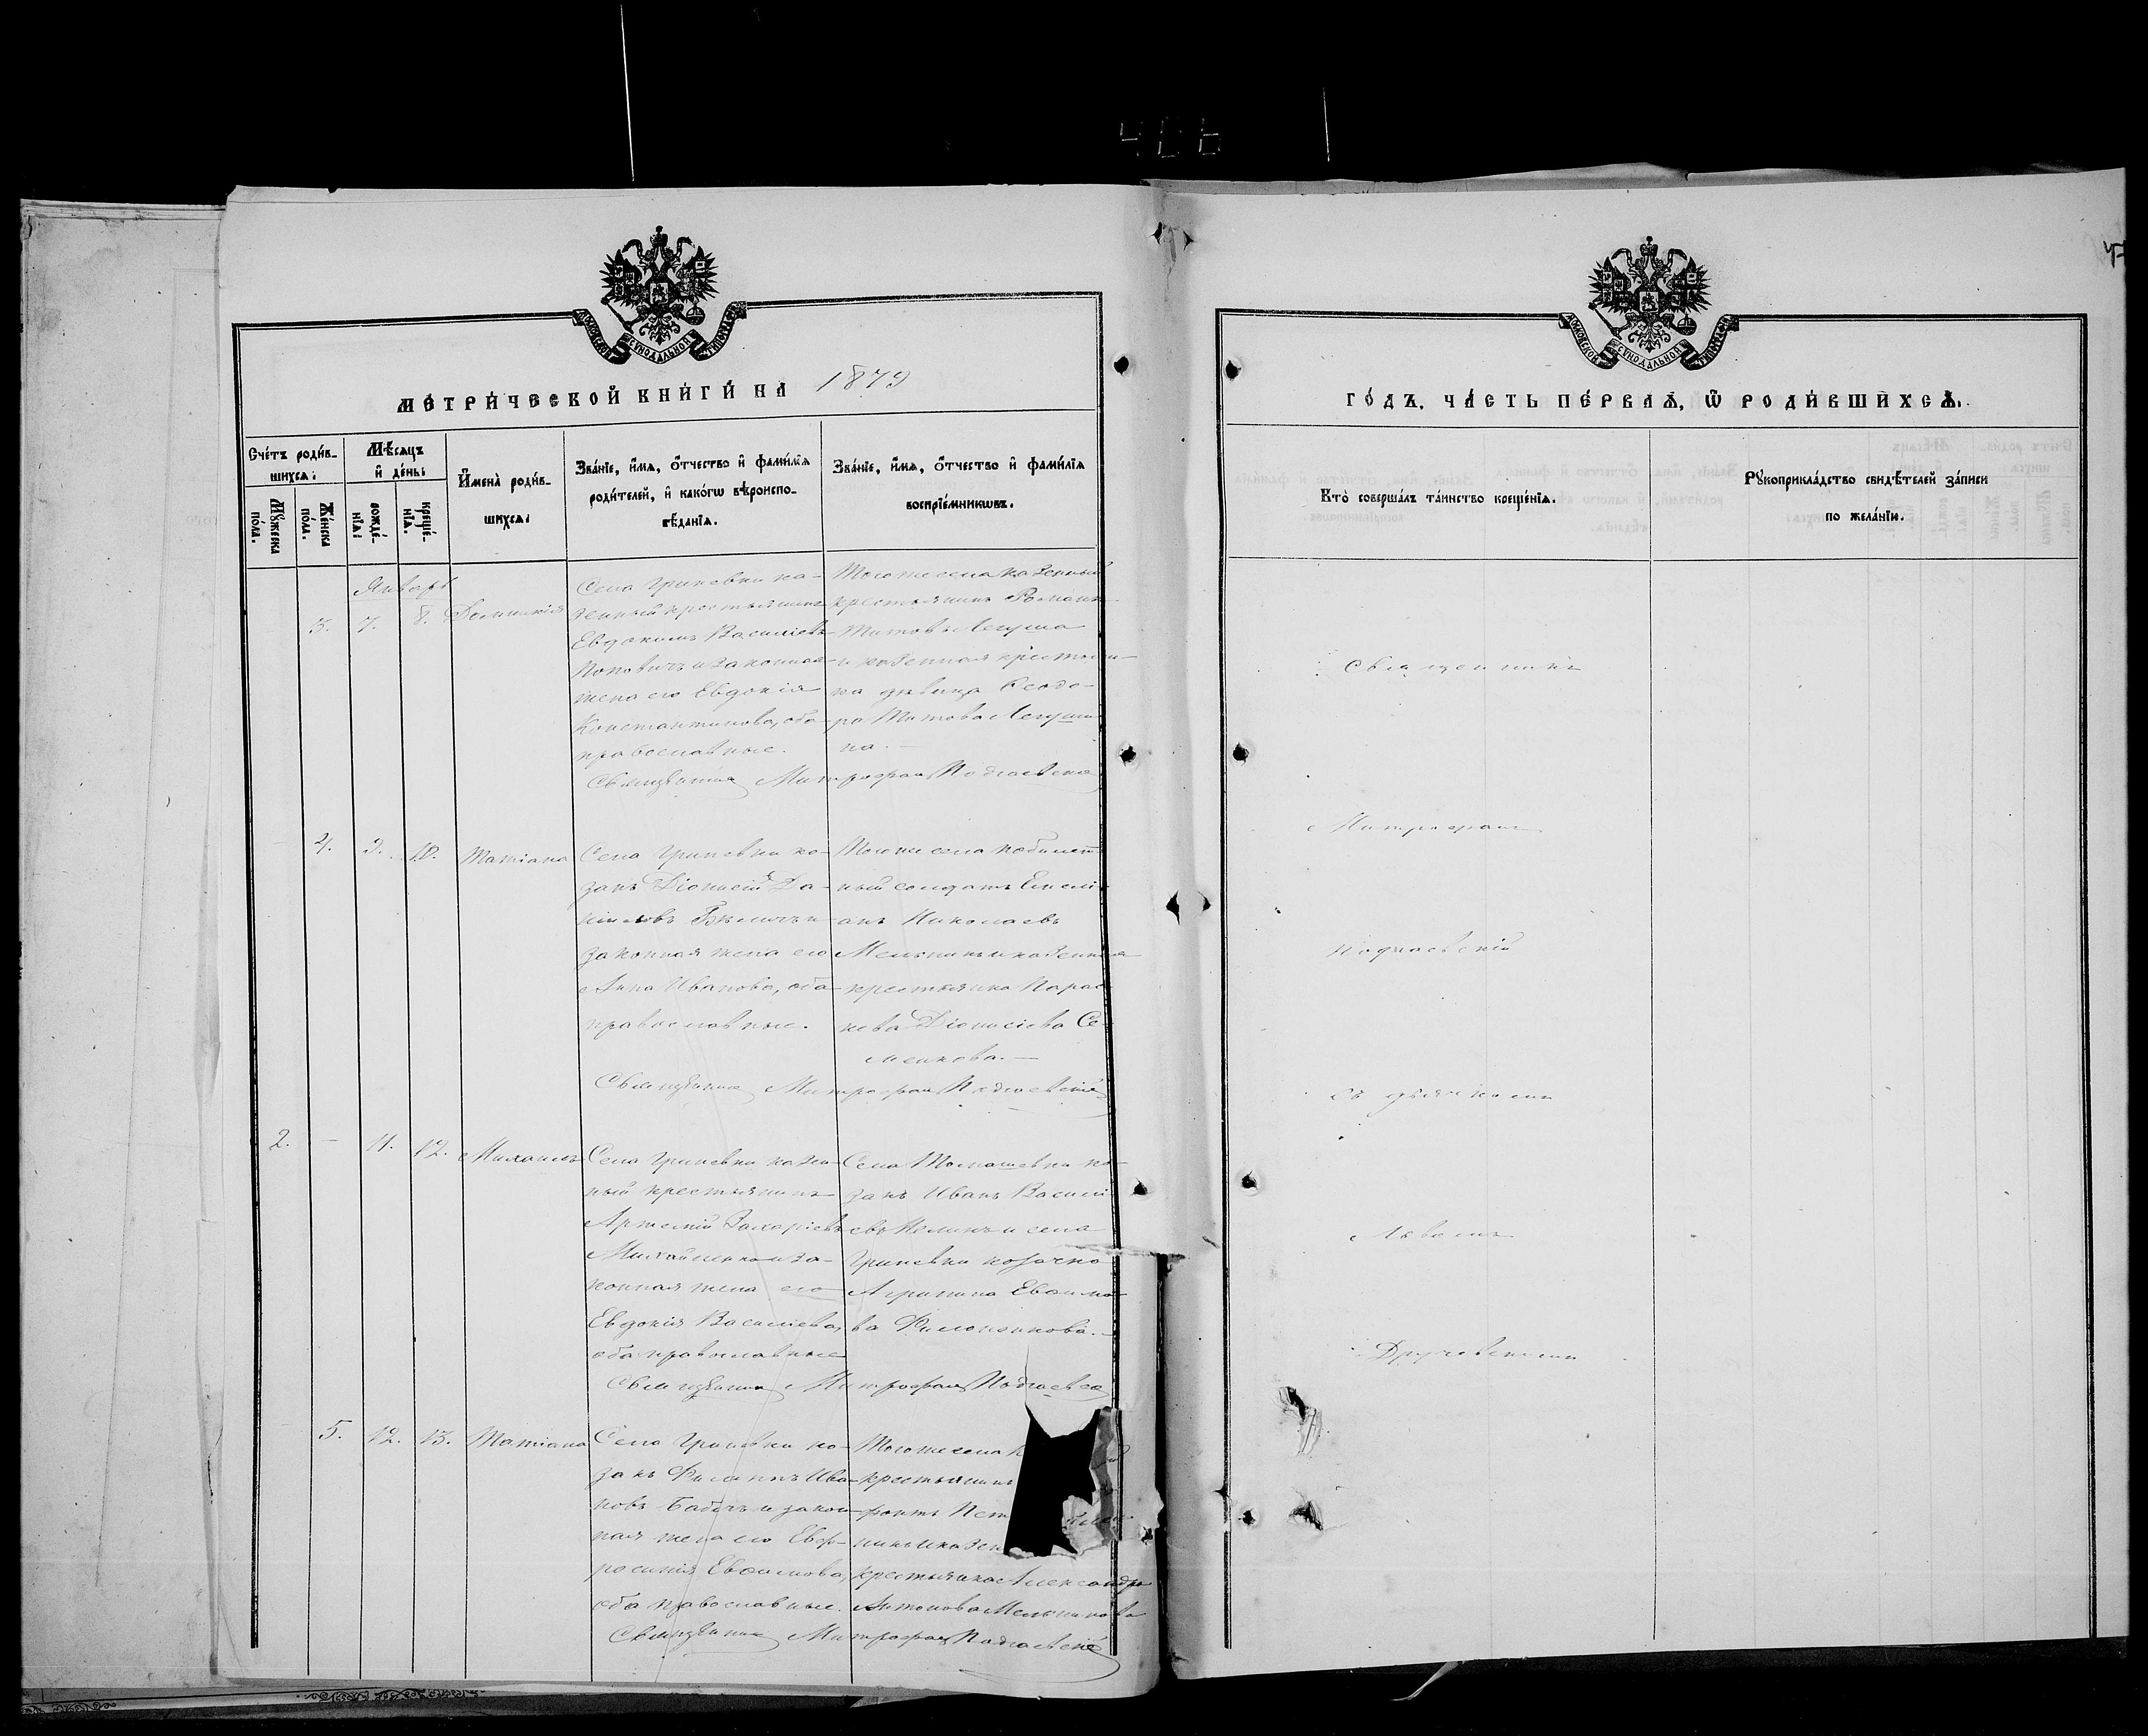 МЕТРИЧЕСКОЙ КНИГИ НА 1879
Счетъ родив-
шихся:
Мужеска пола.
Женска пола.
Мѣсяцъ
и день:
рожде-
нія:
креще-
нія.
Имена родив-
шихся:
Званіе, имя, отчество и фамилія
родителей, и какогѡ вѣроиспо-
вѣданія.
Званіе, имя, отчество и фамилія
воспріемникѡвъ.
Январь
3. 7. 8. Домникія
Села Гриневки ка-
зенный крестьянинъ
Евдокимъ Василіевъ
Поповичъ и законная
жена его Евдокія
Константинова, оба
православные.
Того же села казенный
крестьянинъ Романъ
Титовъ Легуша
и казенная крестьян-
ка дѣвица Ѳеодо-
ра Титова Легуши-
на. —
Священникъ Митрофанъ Подгаевскій
4. 9. 10. Татіана
Села Гриневки ко-
закъ Діонисій Да-
ніиловъ Бѣличъ и
законная жена его
Анна Иванова, оба
православные.
Того же села побилет-
ный солдатъ Емели-
анъ Николаевъ
Мельникъ и казенная
крестьянка Парас-
кева Діонисіева Се-
менкова. —
Священникъ Митрофанъ Подгаевскій
2. — 11. 12. Михаилъ
Села Гриневки казен-
ный крестьянинъ
Артемій Захаріевъ
Михайленко и за-
конная жена его
Евдокія Василіева,
оба православные
Села Томашевки ко-
закъ Иванъ Василі-
евъ и села
Гриневки козачка
Агрипина Евѳимо-
ва Филоненкова. —
Священникъ Митрофанъ Подгаевскій
5. 12. 13. Татіана
Села Гриневки ко-
закъ Филиппъ Ива-
новъ Бабичъ и закон-
ная жена его Евф-
росинія Евѳимова,
оба православные.
Того же села
крестьянинъ
крестьянка Александра
Антонова Мельникова
Священникъ Митрофанъ Подгаевскій
ГОДЪ, ЧАСТЬ ПЕРВАЯ, Ѿ РОДИВШИХСЯ.
Кто совершалъ таинство крещенія.
Рукоприкладство свидѣтелей записи
по желанію.
Священникъ
Митрофанъ
Подгаевскій
съ дьячкомъ
Львомъ